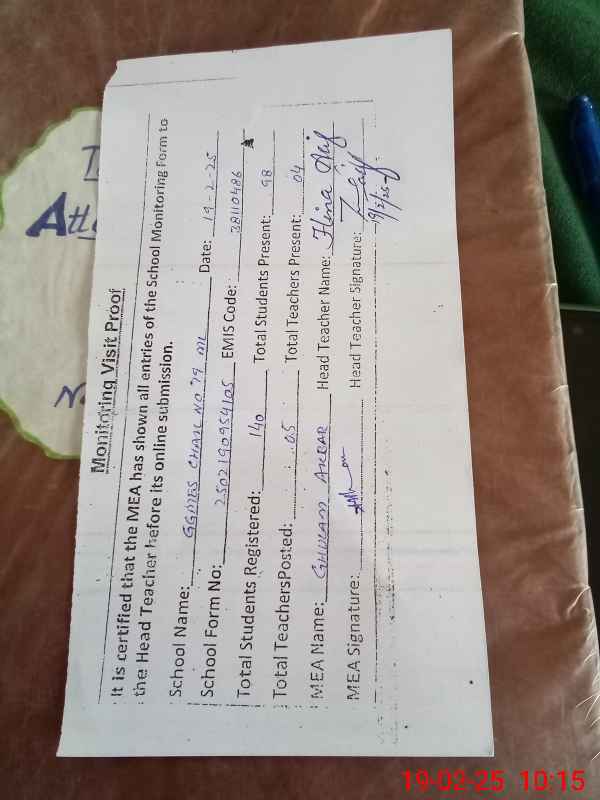 Monitoring Visit Proof
It is certified that the MEA has shown all entries of the School Monitoring Form to
the Head Teacher before its online submission.
School Name: GGMPS CHAK NO 79 ML Date: 19-2-25
School Form No: 2502190954105 EMIS Code: 38110486
Total Students Registered: 140 Total Students Present: 98
Total TeachersPosted: 05 Total Teachers Present: 04
MEA Name: GHULAM AKBAR Head Teacher Name: Hina Arif
MEA Signature: Head Teacher Signature:
19/2/25
19-02-25 10:15